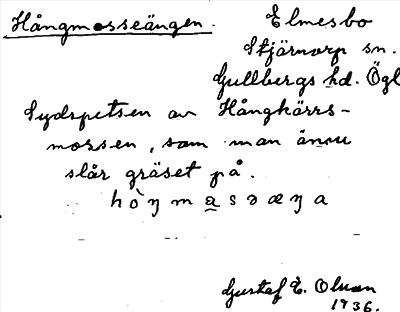 Hångmosseängen. Elmesbo
Stjärnorp sn.
Gullbergs hd. Ögl
Sydspetsen av Hångkärrs-
mossen, som man ännu
slår gräset på.
hòŋmasdæŋa
Gustaf E. Olsson
1936.